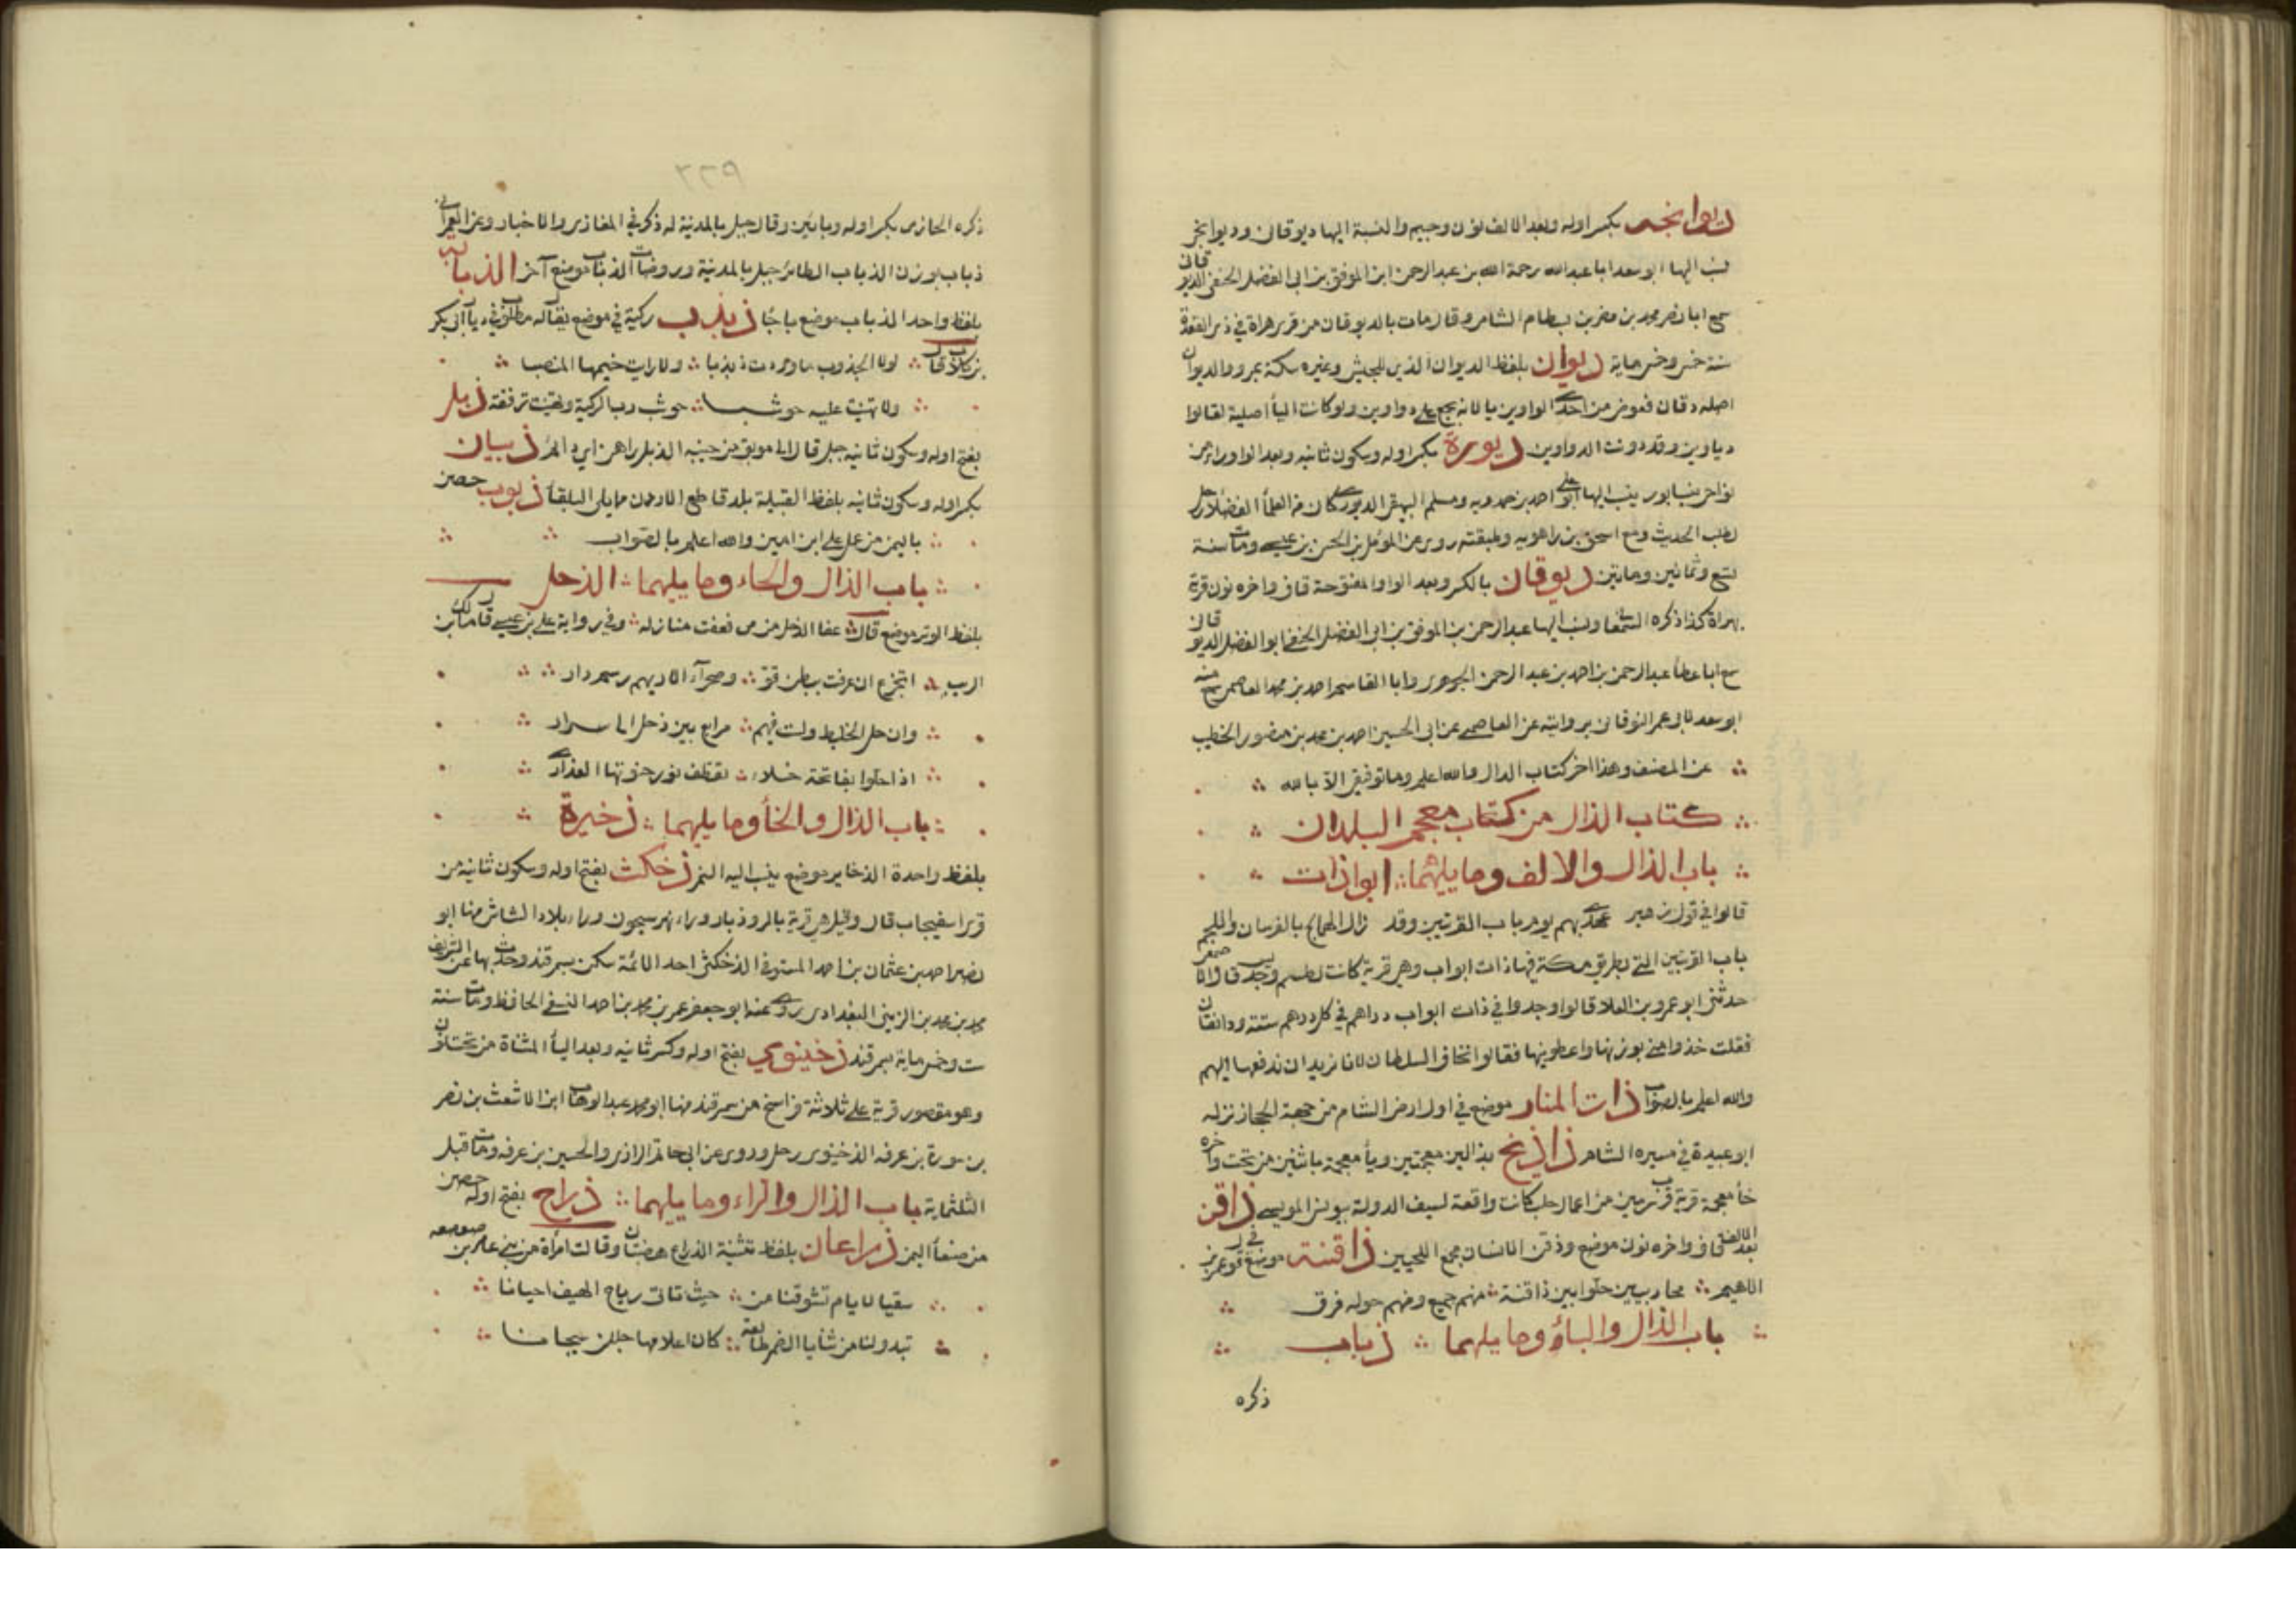 ديوانجه بكسر اوله وبعد الالف نون وجيم والنسبة اليها ديوقان وديوانجر
نسب اليها ابو سعد ابا عبدالله رحمة الله بن عبد الرحمن ابن الموفق بن ابى الفضل الحنفى الديوقانى
سمع ابا نصر محمد بن مضر بن بسطام الشامى وقال مات بالديوقان من قرى هراة فى ذى القعدة
سنة خمس وخمس ماية ديوان بلفظ الديوان الذى للجيش وغيره سكة بمرو والديوان
اصله دقان فعوض من احدى الواوين يا لانه يجمع على دواوين ولو كانت اليأ اصلية لقالوا
دياوين وقد دونت الدواوين ديورة بكسر اوله وسكون ثانيه وبعد الواو راء من
نواحى نيسابور ينسب اليها ابو على احمد بن حمدويه ومسلم البيهقى الديورى كان من العلمأ الفضلا رحل
لطلب الحديث ومع اسحق بن راهويه وطبقته روى عن المؤمل بن الحسن بن عيسى ومات سنة
تسع وثمانين ومايتين ديوقان بالكسر وبعد الواو المفتوحة قاف واخره نون قرية
بهراة كذا ذكره السمعا ونسب اليها عبد الرحمن بن الموفق بن ابى الفضل الحنفى ابو الفضل الديوقانى
سمع ابا عطأ عبد الرحمن بن احمد بن عبد الرحمن الجوهرى وابا القاسم احمد بن محمد العاصمى سمع منه
ابو سعد لابى عمر النوقانى بروايته عن العاصمى عن ابى الحسين احمد بن محمد بن منصور الخطيب
عن المصنف وهذا اخر كتاب الدال والله اعلم وما توفيقى الا بالله
كتاب الذال من كتاب معجم البلدان
باب الذال والالف وما يليهما ابواذات
قالوا فى قول زهير عهدى بهم يوم باب القريتين وقد زال الهماج بالفرسان واللجم
باب القريتين التى بطريق مكة فيها ذات ابواب وهى قرية كانت لطسم وجديس قال الاصمعى
حدثنى ابو عمرو بن العلا قالوا وجدوا فى ذات ابواب دراهم فى كل درهم ستة ودانقان
فقلت خذوا منى بوزنها واعطونيها فقالوا نخاف السلطان لانا نريد ان ندفعها اليهم
والله اعلم بالصواب ذات المنار موضع فى اول ارض الشام من جهة الحجاز نزله
ابو عبيدة فى مسيره الشام ذاذيخ بذالين معجمتين ويأ معجمة باثنين من تحت واخره
خأ معجمة قرية قرب سرمين من اعمال حلب كانت واقعة لسيف الدولة بيونس المونسى ذاقن
بعد الالف قاف واخره نون موضع وذقن الانسان مجمع اللحيين ذاقنة موضع فى قول عمرو بن
الاهيم محاربيين حلوا بين ذاقنة منهم جميع ومنهم حوله فرق
باب الذال والبأ وما يليهما ذباب
ذكره
٣٢٩
ذكره الحازمى بكسر اوله وبائين وقال جبل بالمدينة له ذكر فى المغازى والاخبار وعن العمرانى
ذباب بوزن الذباب الطائر جبل بالمدينة وروضات الذباب موضع آخر الذبابة
بلفظ واحد الذباب موضع باجأ ذبذب ركية فى موضع يقال له مطلوب فى ديار ابى بكر
بن كلاب قال لولا الجذوب ما وردت ذبذبا ولا رايت خيمها المنصبا
ولا تهنيت عليه حوشبا حوشب رب الركية وتهنيت ترفقة ذبل
بفتح اوله وسكون ثانيه جبل قال الى مونق من جنبه الذبل راهن اى دائم ذبيان
بكسر اوله وسكون ثانيه بلفظ القبيلة بلد قاطع الاردن مما يلى البلقأ ذبوب حصن
باليمن من عمل على ابن امين والله اعلم بالصواب
باب الذال والحاء وما يليهما الذحل
بلفظ الوتر موضع قال عفا الذحل من مى فعفت منازله وفى رواية على بن عيسى قال مالك بن
الريب اتجزع ان عرفت ببطن قو وصحرآء الاديهم رسم دار
وان حل الخليط ولست فيهم مرابع بين ذحل الى سرار
اذا حلوا بفاتحة خلاء تقطف نور حنوتها العذارى
باب الذال والخأ وما يليهما ذخيرة
بلفظ واحدة الذخاير موضع ينسب اليه التمر ذخكث بفتح اوله وسكون ثانيه من
قرى اسفيجاب قال وقيل هى قرية بالروذبار وراء نهر سيحون وراء بلاد الشاش منها ابو
نصر احمد بن عثمان بن احمد المستوفى الذخكثى احد الائمة سكن بسمرقند وحدث بها عن الشريف
محمد بن محمد بن الزينى البغدادى روى عنه ابو جعفر عمر بن محمد بن احمد النسفى الحافظ ومات سنة
ست وخمس ماية بسمرقند ذخينوى بفتح اوله وكسر ثانيه وبعد اليأ المثناة من تحت نون
وهو مقصور قرية على ثلاثة فراسخ من سمرقند منها ابو محمد عبد الوهاب ابن الاشعث بن نصر
بن سورة بن عرفه الذخينوى رحل وروى عن ابى حاتم الرازى والحسين بن عرفه ومات قبل
الثلثماية باب الذال والراء وما يليهما ذراح بفتح اوله حصن
من صنعأ اليمن ذراعان بلفظ تثنية الذراع هضبتان وقالت امرأة من بنى عامر بن صعصعه
سقيا لايام تشوقنا من حيث تاتى رياح الهيف احيانا
تبدو لنا من ثنايا الضمر طالعة كان اعلامها جللن سيجانا